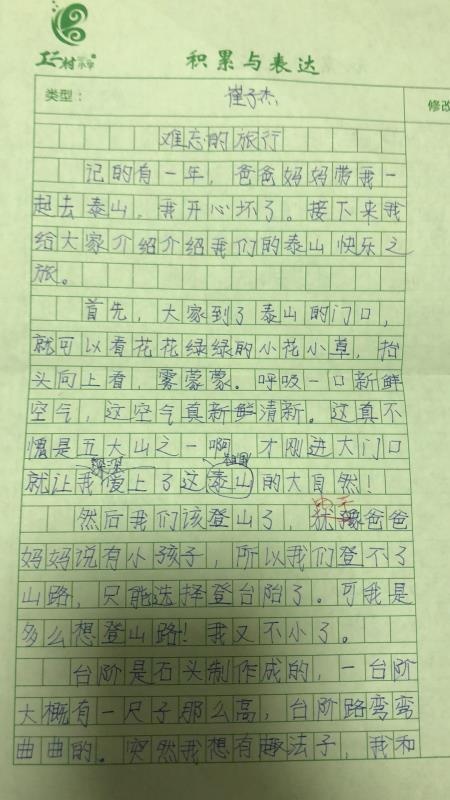 工人村小学
积累与表达
类型： 崔子杰 修改
难忘的旅行
记的有一年，爸爸妈妈带我一
起去泰山，我开心坏了。接下来我
给大家介绍介绍我们的泰山快乐之
旅。
首先，大家到了泰山的门口，
就可以看花花绿绿的小花小草，抬
头向上看，雾蒙蒙。呼吸一口新鲜
空气，这空气真新鲜清新。这真不
愧是五大山之一啊，才刚进大门口
深深
就让我爱上了这泰山的大自然！
然后我们该登山了，由于爸爸
妈妈说有小孩子，所以我们登不了
山路，只能选择登台阶了。可我是
多么想登山路！我又不小了。
台阶是石头制作成的，一台阶
大概有一尺子那么高，台阶路弯弯
曲曲的。突然我想有趣法子，我和